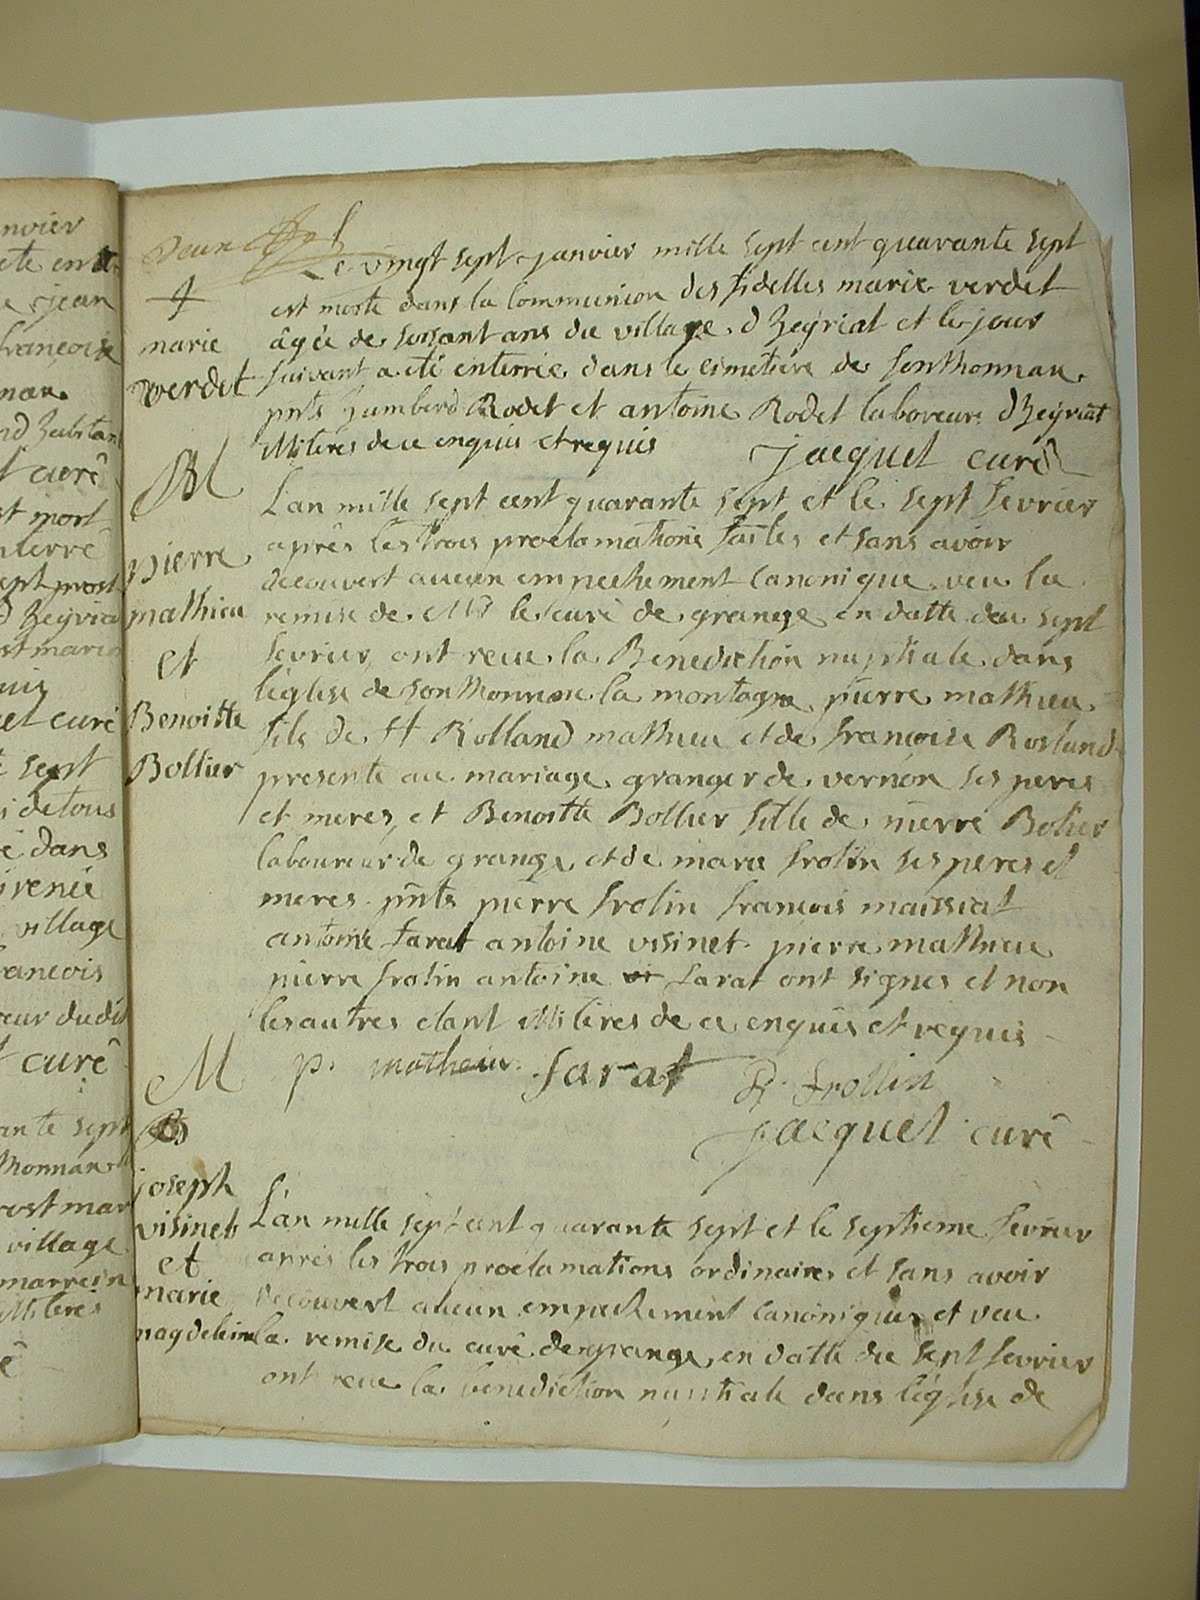 nvier
ete enter
e jean
francoise
nan
nd Zubstan
t curé
st mort
pierre
sept prost
d Zeÿria
st maria
uis
uet curé
é sept
i de tous
é dans
irenie
village
rancois
eur dudit
t curé
ante sept
thonnan
rost mar
village
marrein
illiteres
é
deux
Le vingt sept janvier mille sept cent quarante sept
est morte dans la Communion des fidelles marie verdet
âgée de soisant ans du village d Zeÿriat et le jour
suivant a été enterrée dans le cimetiére de sonthonnan
pnts humberd Rodet et antoine Rodet laboreurs d Zeÿriat
illiteres de ce enquis et requis jacquet curé
†
marie
verdet
M
pierre
mathieu
et
Benoitte
Bollier
L'an mille sept cent quarante sept et le sept fevrier
aprés les trois proclamations faites et sans avoir
decouvert aucun empechement Canonique veu la
remise de Mr le curé de grange en datte du sept
fevrier ont receu la Benediction nuptiale dans
l'église de sonthonnan la montagne pierre mathieu
fils de ff Rolland mathieu et de francoise Rosland
presente au mariage granger de vernon ses peres
et meres et Benoitte Bollier fille de pierre Bolier
laboureur de grange et de marie frolin ses peres et
meres pnts pierre frolin francois maissiat
antoine farat antoine visinet pierre mathieu
pierre frolin antoine vi farat ont signes et non
les autres etant illiteres de ce enquis et requis
p. matheiu farat P. frollin
jacquet curé
M
joseph
visinet
et
marie
magdeleine
L'an mille sept cent quarante sept et le septieme fevrier
aprés les trois proclamations ordinaires et sans avoir
decouvert aucun empechement Canonique et veu
la remise du curé de grange en datte du sept fevrier
ont receu la benediction nuptiale dans l'église de